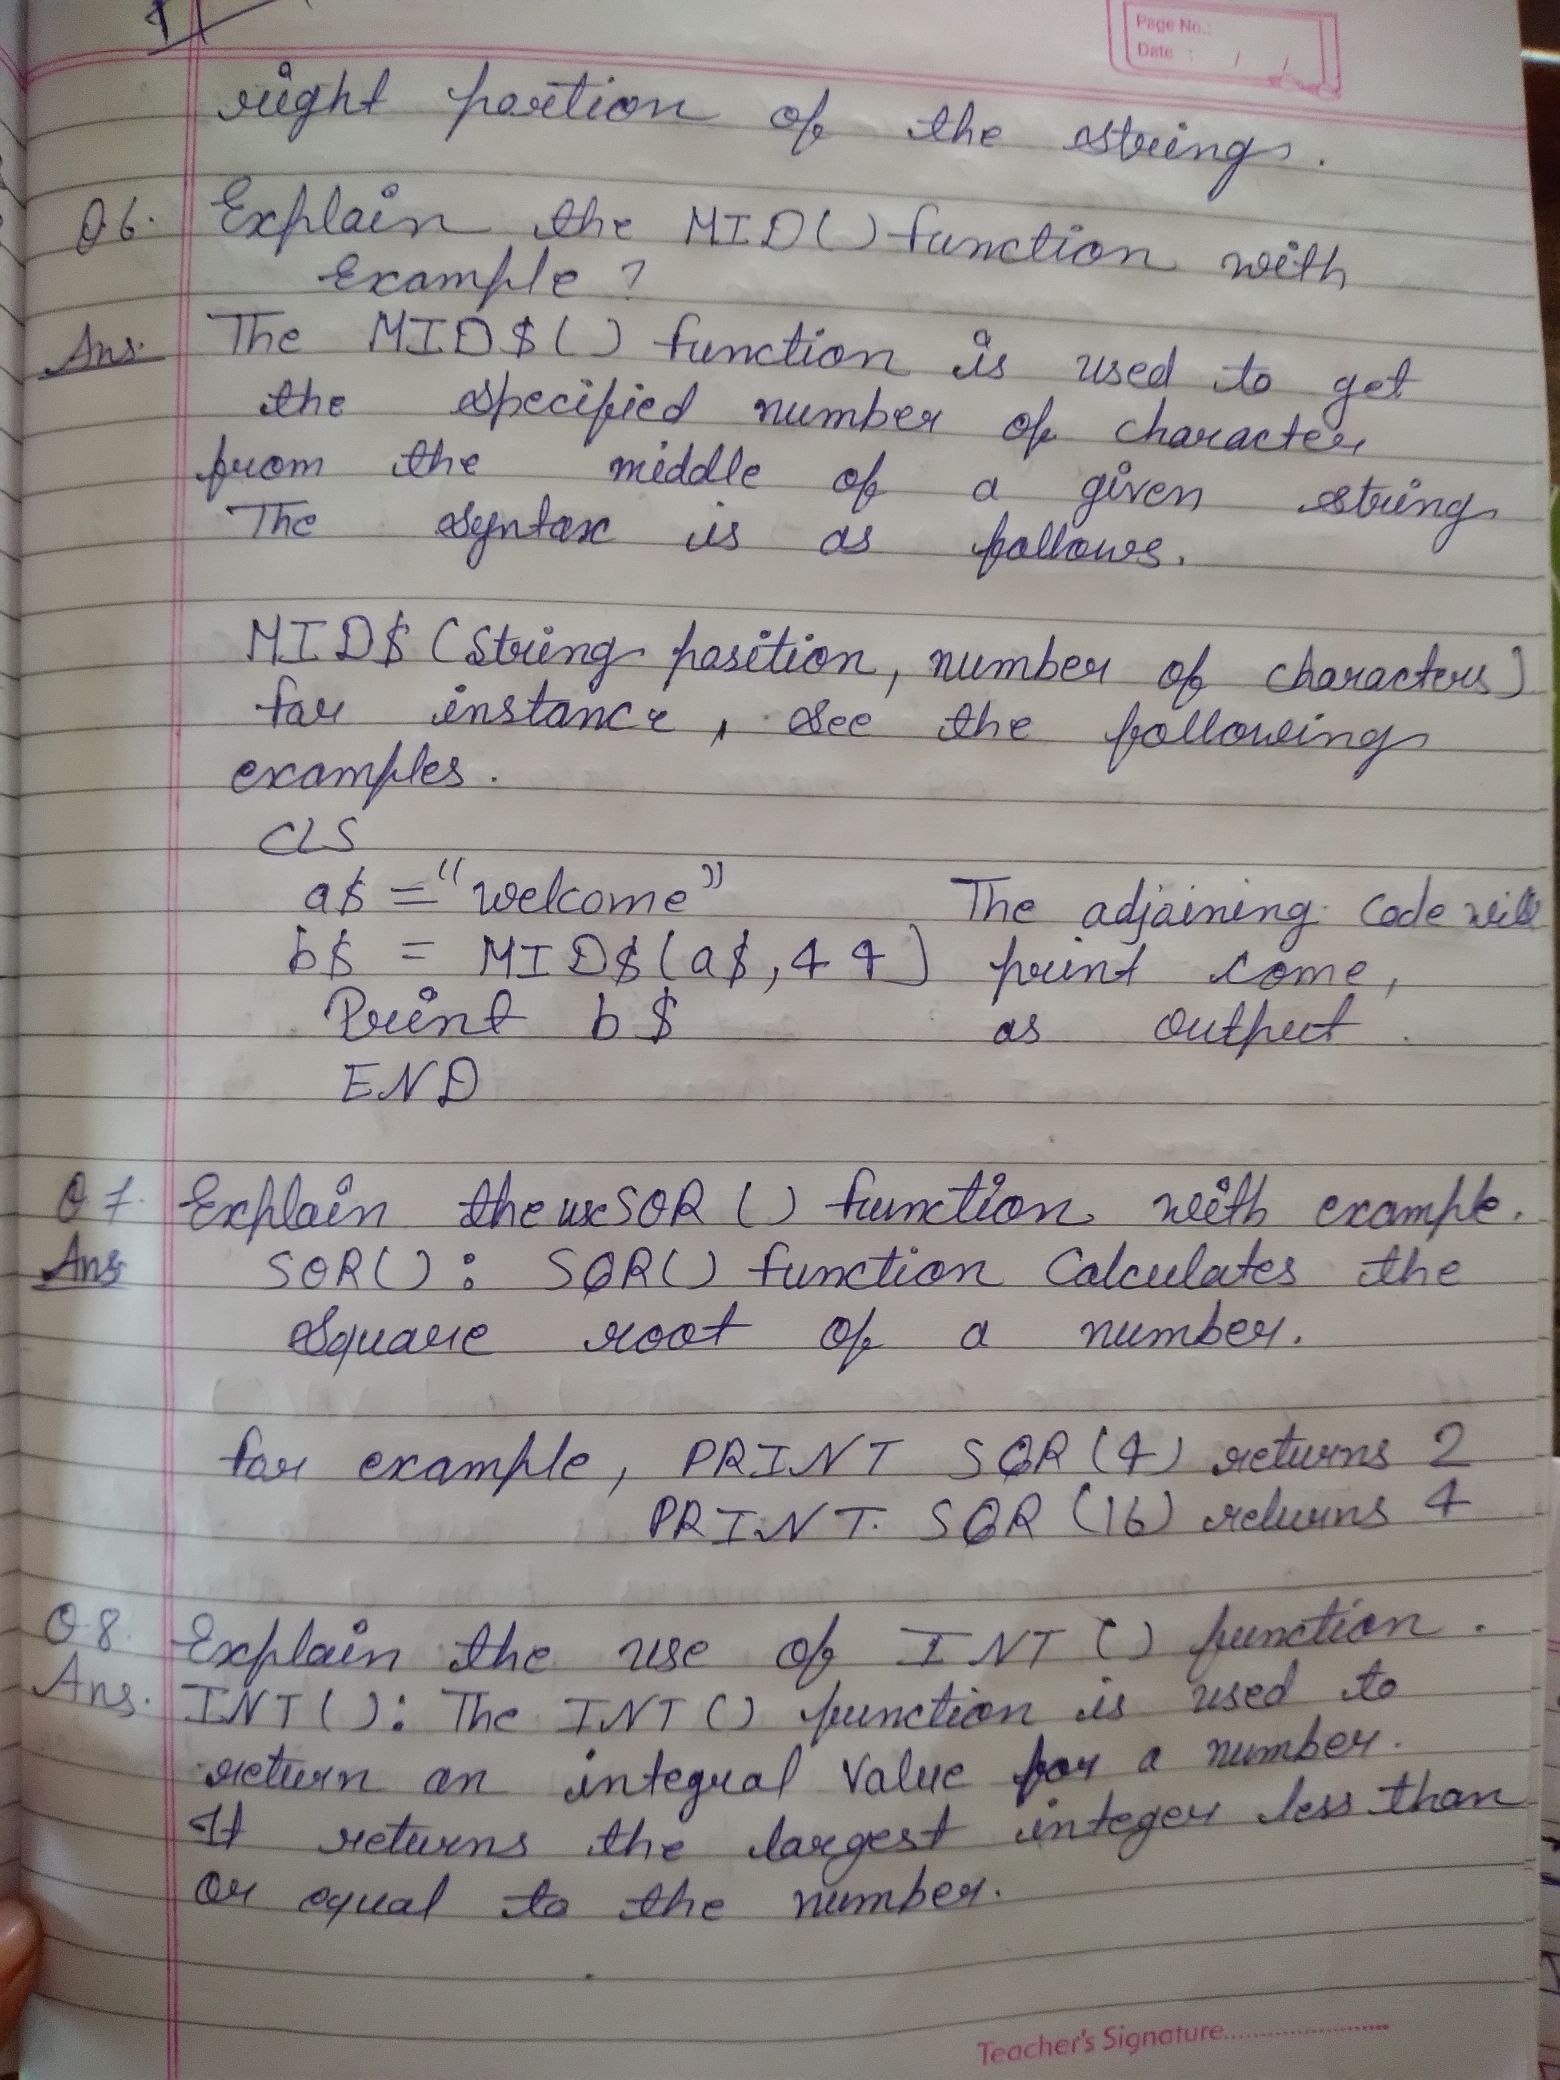 Page No.:
Date : / /
right portion of the string.
Q6. Explain the MID() function with
Example?
Ans. The MID$() function is used to get
the specified number of character
from the middle of a given string
The syntax is as follows.
MID$ (String position, number of characters)
for instance, see the following
examples.
CLS
a$ = "welcome"
The adjoining code will
b$ = MID$(a$,4 4)
print come,
Print b$
as output.
END
Q7. Explain the use SQR () function with example.
Ans SQR(): SQR() function Calculates the
square root of a number.
for example, PRINT SQR (4) returns 2
PRINT. SQR (16) returns 4
Q8. Explain the use of INT () function.
Ans. INT(): The INT () function is used to
return an integral value for a number.
It returns the largest integer less than
or equal to the number.
Teacher's Signature